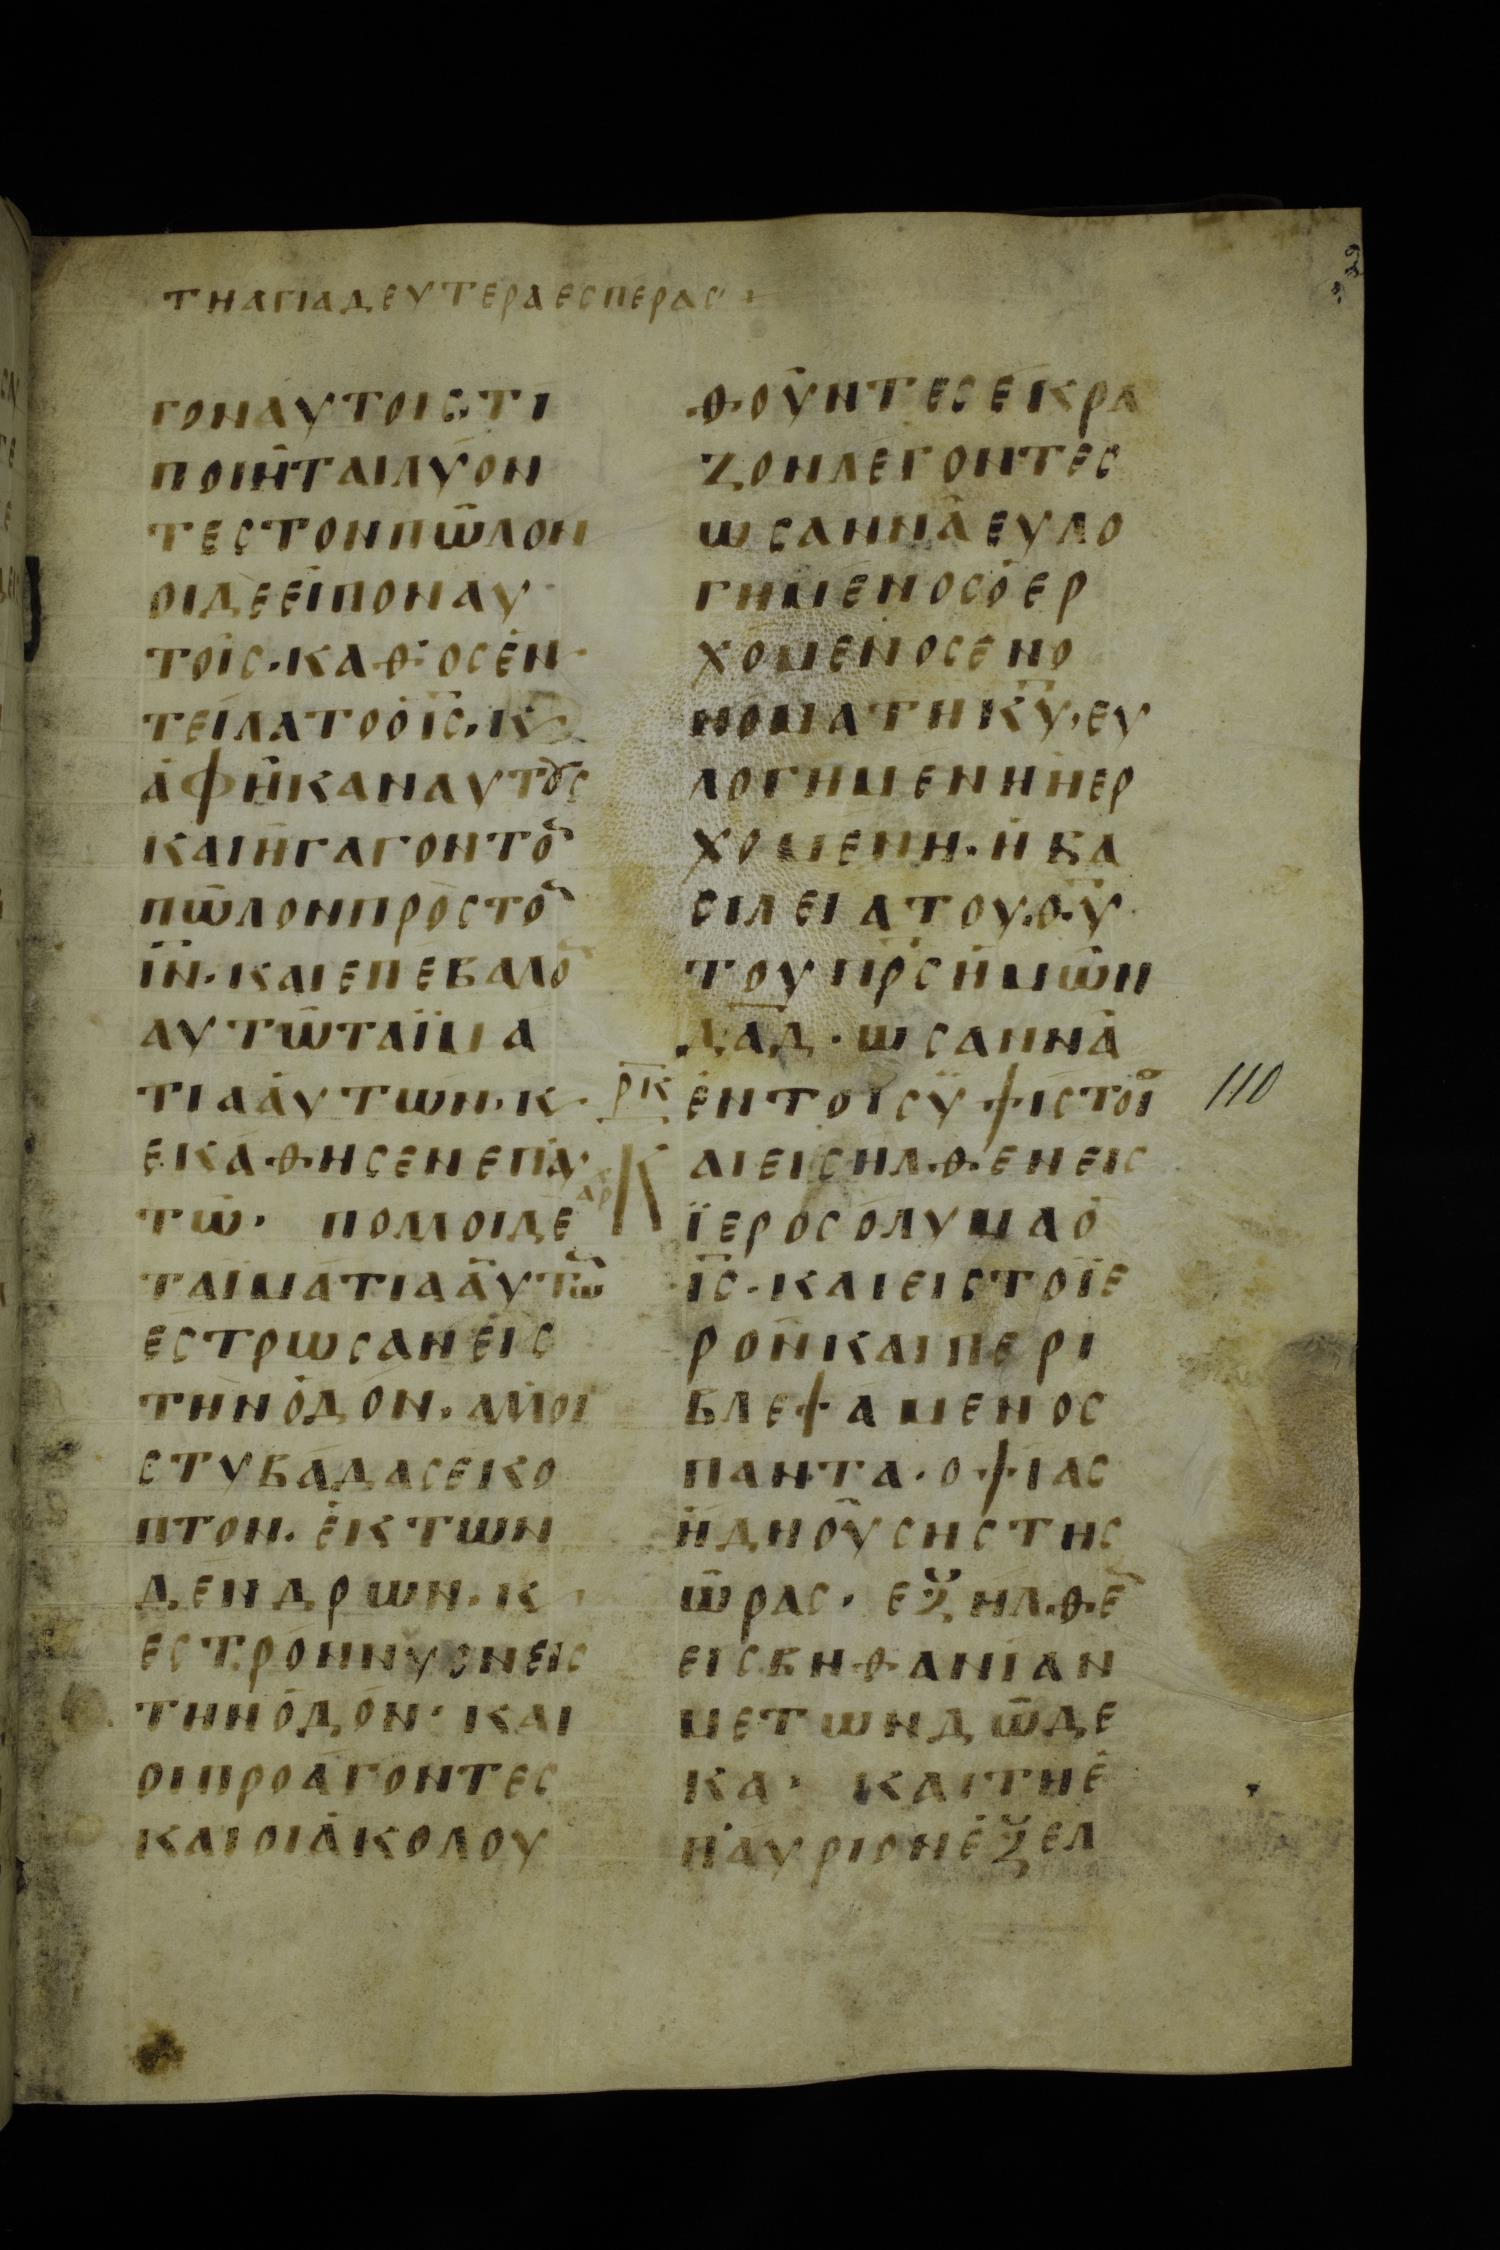 ΤΗΑΓΙΑΔΕΥΤΕΡΑΕΣΠΕΡΑΣ
ΓΟΝΑΥΤΟΙΣ·ΤΙ
ΠΟΙΗΤΑΙΛΥΟΝ
ΤΕΣΤΟΝΠΩΛΟΝ
ΟΙΔΕΕΙΠΟΝΑΥ
ΤΟΙΣ·ΚΑΘΟΣΕΝ
ΤΕΙΛΑΤΟΟΙ̅Σ̅·Κ
ΑΦΗΚΑΝΑΥΤȣΣ
ΚΑΙΗΓΑΓΟΝΤΟ̅
ΠΩΛΟΝΠΡΟΣΤΟ̅
Ι̅Ν̅·ΚΑΙΕΠΕΒΑΛΛΟ̅
ΑΥΤΩΤΑΪΜΑ
ΤΙΑΑΥΤΩΝ·Κ
ΕΚΑΘΗΣΕΝΕΠΑΥ
ΤΩ· ΠΟΛΛΟΙΔΕ
ΤΑΙΜΑΤΙΑΑΥΤΩ̅
ΕΣΤΡΩΣΑΝΕΙΣ
ΤΗΝΟΔΟΝ·ΑΛΛΟΙ
ΣΤΥΒΑΔΑΣΕΚΟ
ΠΤΟΝ·ΕΚΤΩΝ
ΔΕΝΔΡΩΝ·Κ
ΕΣΤΡΟΝΝΥΟΝΕΙΣ
ΤΗΝΟΔΟΝ· ΚΑΙ
ΟΙΠΡΟΑΓΟΝΤΕΣ
ΚΑΙΟΙΑΚΟΛΟΥ
ΘΟΥΝΤΕΣΕΚΡΑ
ΖΟΝΛΕΓΟΝΤΕΣ
ΩΣΑΝΝΑΕΥΛΟ
ΓΗΜΕΝΟΣΟΕΡ
ΧΟΜΕΝΟΣΕΝΟ
ΝΟΜΑΤΗΚ̅Υ̅·ΕΥ
ΛΟΓΗΜΕΝΗΗΕΡ
ΧΟΜΕΝΗ·ΗΒΑ
ΣΙΛΕΙΑΤΟΥΘ̅Υ̅
ΤΟΥΠ̅Ρ̅Σ̅ΗΜΩΝ
Δ̅Α̅Δ̅·ΩΣΑΝΝΑ
Ρ̅Κ̅ ΕΝΤΟΙΣΥΨΙΣΤΟΙ
ΚΑΙΕΙΣΗΛΘΕΝΕΙΣ
ΪΕΡΟΣΟΛΥΜΑΟ
Ι̅Σ̅·ΚΑΙΕΙΣΤΟΪΕ
ΡΟΝΚΑΙΠΕΡΙ
ΒΛΕΨΑΜΕΝΟΣ
ΠΑΝΤΑ·ΟΨΙΑΣ
ΗΔΗΟΥΣΗΣΤΗΣ
ΩΡΑΣ· ΕΞΗΛΘΕ̅
ΕΙΣΒΗΘΑΝΙΑΝ
ΜΕΤΩΝΔΩΔΕ
ΚΑ· ΚΑΙΤΗΕ
ΠΑΥΡΙΟΝΕΞΕΛ
110